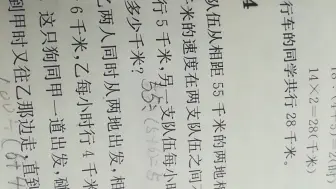 14×2=28(千米)
行车的同学共行 28 千米。
4
队伍从相距 55 千米的两地相
千米的速度在两支队伍之间
行 5 千米，另一支队伍每小
多少千米?
乙两人同时从两地出发，相
6 千米，乙每小时行 4 千米
这只狗同甲一道出发，碰
到甲时又往乙那边走，直到
100÷(6+4